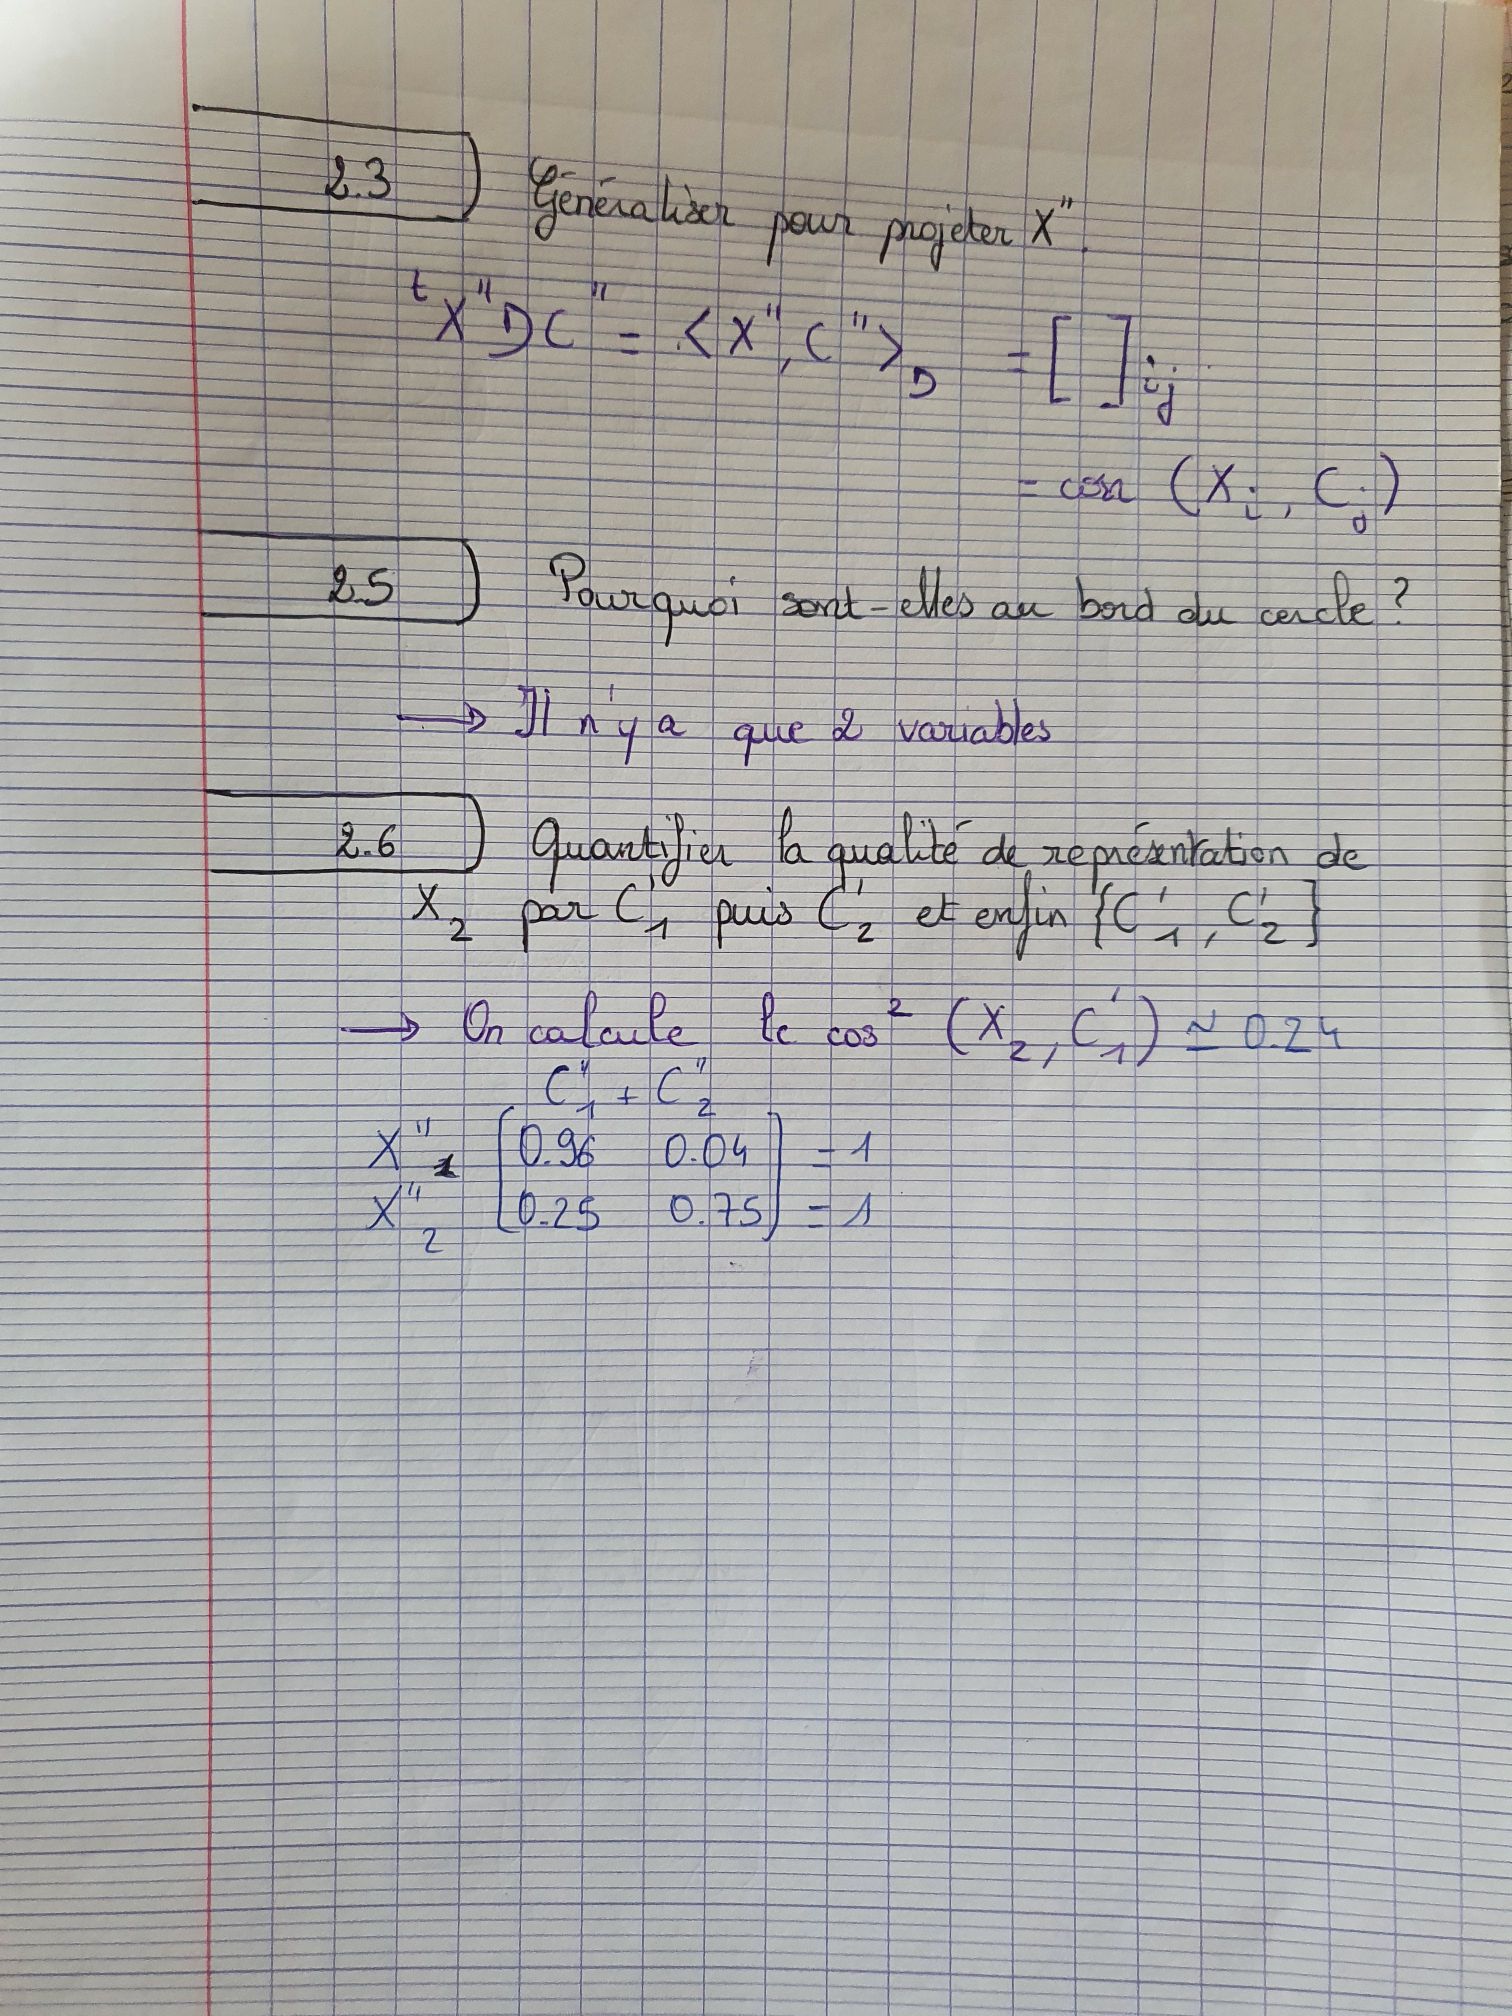 2.3 Généraliser pour projeter X".
ᵗX"DC" = <X", C">_D = [ ]_ij
= corr (X_i, C_j)
2.5 Pourquoi sont-elles au bord du cercle ?
→ Il n'y a que 2 variables
2.6 Quantifier la qualité de représentation de
X_2 par C'_1 puis C'_2 et enfin {C'_1, C'_2}
→ On calcule le cos² (X_2, C'_1) ≃ 0.24
C"_1 + C"_2
X"_1 [0.96 0.04] = 1
X"_2 [0.25 0.75] = 1